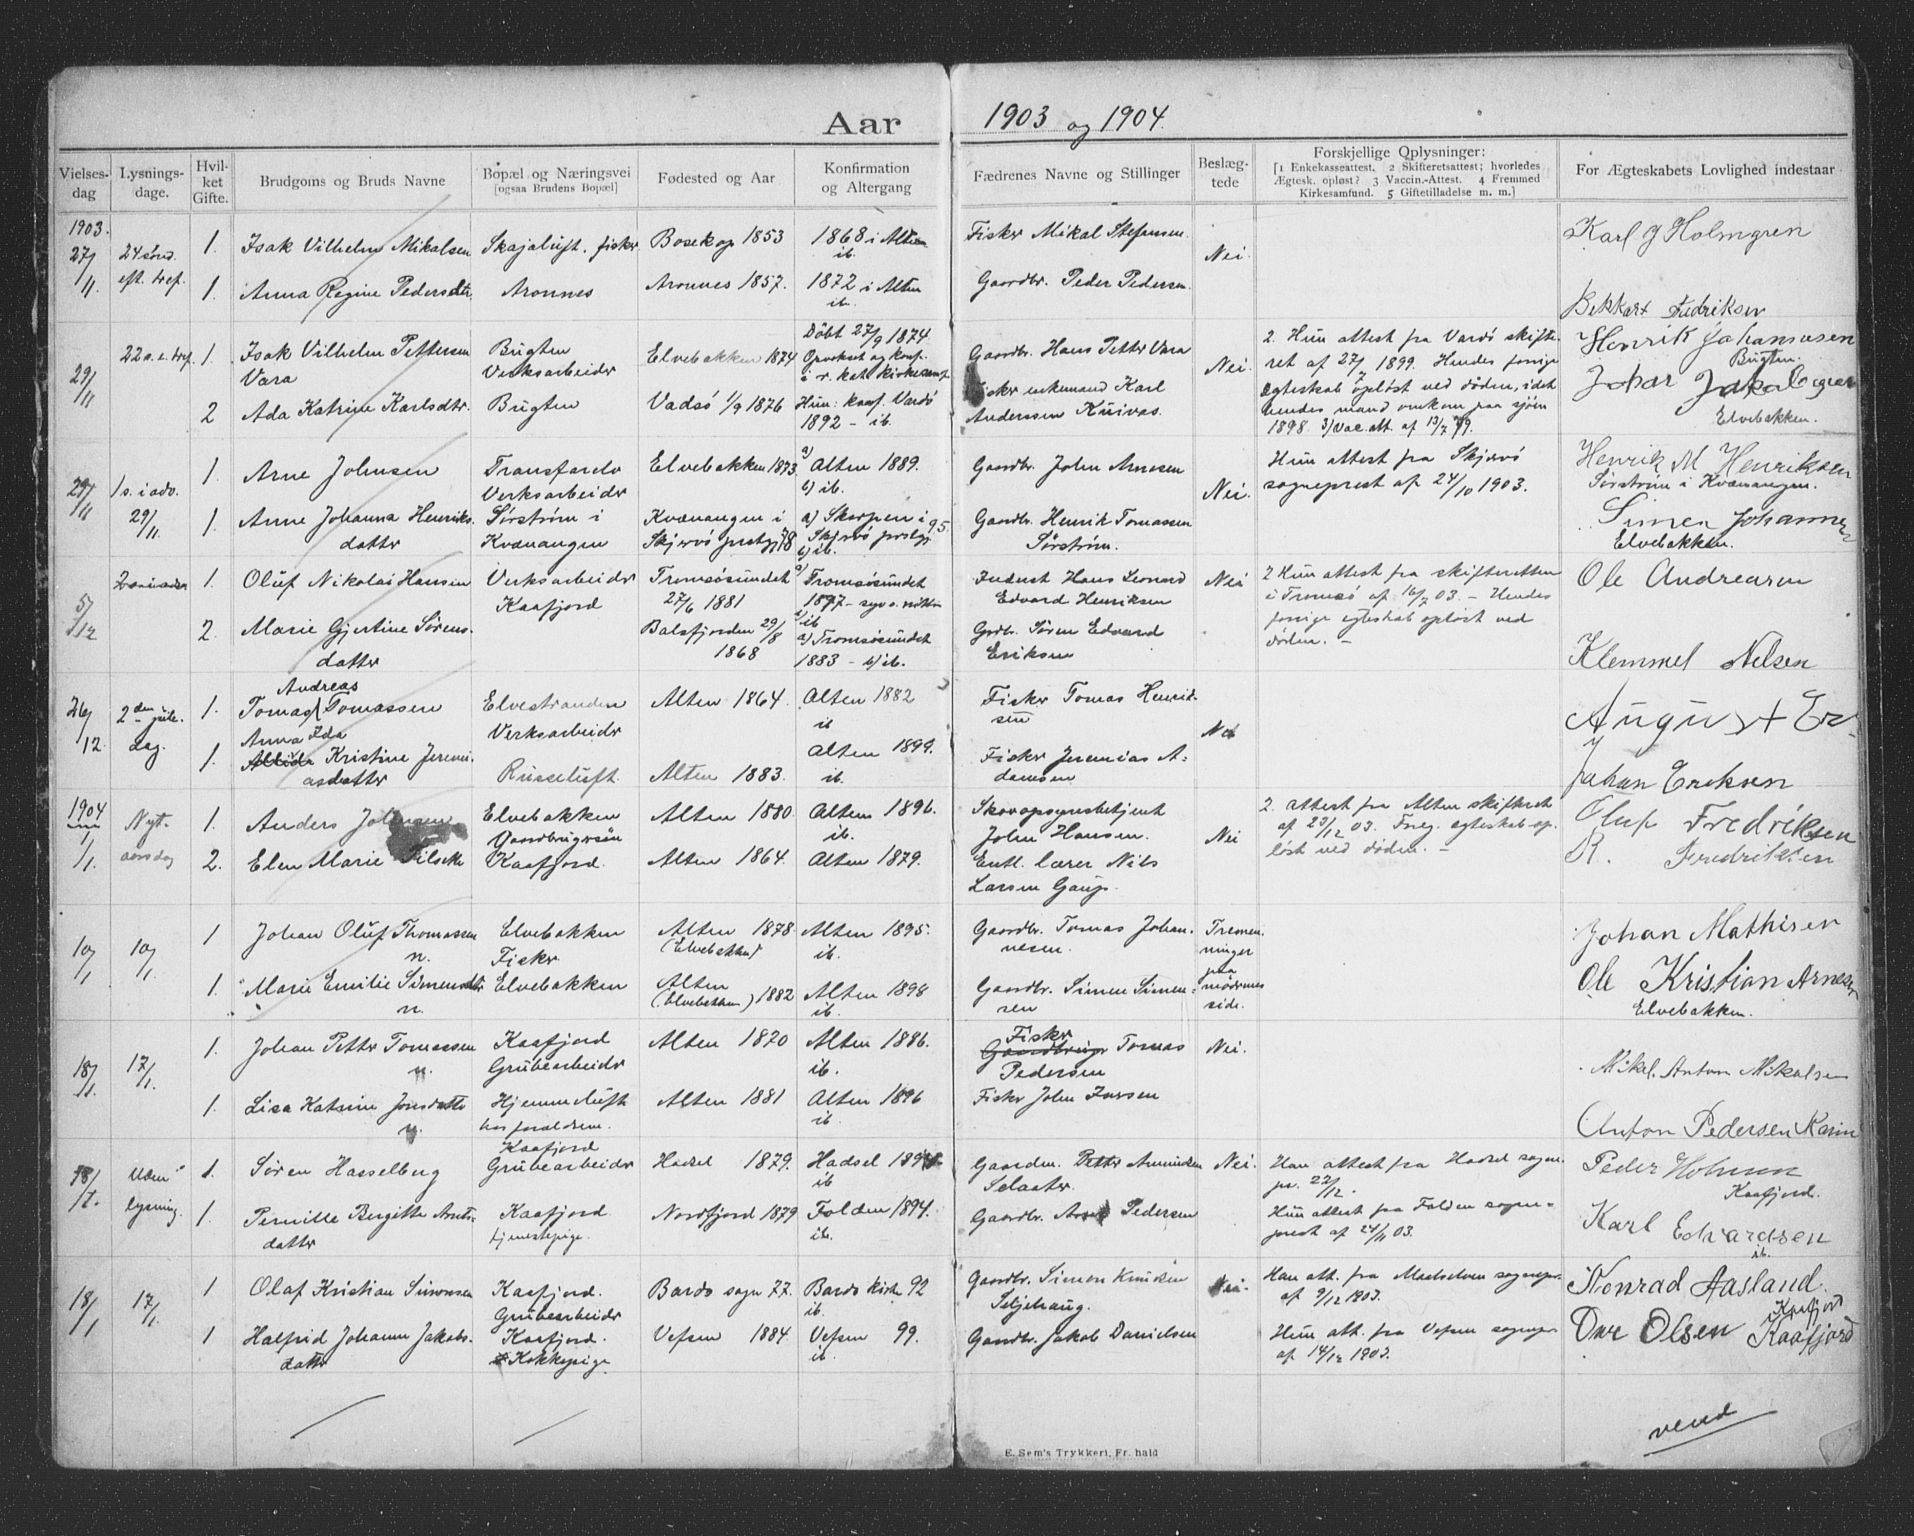 Aar 1903 og 1904
Vielsesdag
Lysningsdage.
Hvilket Gifte.
Brudgoms og Bruds Navne
Bopæl og Næringsvei [ogsaa Brudens Bopæl]
Fødested og Aar
Konfirmation og Altergang
Fædrenes Navne og Stillinger
Beslægtede
Forskjellige Oplysninger: [1 Enkekasseattest. 2 Skifteretsattest; hvorledes Ægtesk. opløst? 3 Vaccin.-Attest. 4 Fremmed Kirkesamfund. 5 Giftetilladelse m. m.]
For Ægteskabets Lovlighed indestaar
1903.
27/11 24 sønd. eft. tref.
1. Isak Vilhelm Mikalsen Skajaluft. fisker Bosekop 1853 1868 i Alten ib. Fisker Mikal Stefansen. Nei. Karl J Holmgren
1. Anna Regine Pedersdtr. Aronnes Aronnes 1857. 1872 i Alten ib. Gaardbr. Peder Pedersen. Bekkart Fedriksen
29/11 22 s. e. tref.
1. Isak Vilhelm Pettersen Vara Bugten Verksarbeider Elvebakken 1874 Døbt 27/9 1874. Opvokset og konf. i r. kat. kirkesamf. Gaardbr. Hans Petter Vara Nei. Henrik Johannesen Bugten.
2 Ada Katrine Karlsdtr. Bugten Vadsø 1/9 1876 Hun: konf. Vardø 1892 - ib. Fisker enkemand Karl Anderssen Kuivas. Elvebakken.
2. Hun attest fra Vardø skifteret af 27/7 1899. Hendes forrige egteskab opløst ved døden, idet hendes mand omkom paa sjøen 1898. 3) Vac. att. af 13/7 99.
29/11 1 s. i adv. 29/11
1. Arne Johnsen Transfardv Verksarbeider Elvebakken 1873 a) Alten 1889. b) ib. Gaardbr. John Arnesen Nei. Hun attest fra Skjervø sogneprest af 24/10 1903. Henrik M Henriksen Sørstrøm i Kvænangen.
1. Anne Johanna Henriksdatter Sørstrøm i Kvænangen Kvænangen i Skjervø prestgj. 78 a) Skorpen i Skjervø prstgj. 95. b) ib. Gaardbr. Henrik Tomassen Sørstrøm. Simen Johannes Elvebakken.
5/12
1. Oluf Nikolai Hansen Verksarbeider Kaafjord Tromsøsundet 27/6 1881 a) Tromsøsundet 1897 - b) ib Inderst Hans Leonard Edvard Henriksen Nei 2 Hun attest fra skifteretten i Tromsø af 16/7 03. - Hendes forrige egteskab opløst ved døden. - Ole Andreasen
2. Marie Gjertine Sørensdatter Balsfjorden 29/8 1868 a) Tromsøsundet 1883 - b) ib. Grdbr. Søren Edvard Eriksen Klemmel Nelsen
26/12 2den juledag.
1. Tomas Andreas Tomassen Elvestranden Verksarbeider Alten 1864. Alten 1882 ib Fisker Tomas Henriksen Nei August Er
1. Anna Ida Kristine Jeremiasdatter Russeluft. Alten 1883. Alten 1899. ib. Fisker Jeremias Adamsen Johan Eriksen
1904
1/1. Nytaarsdag
1. Anders Johnsen Elvebakken Gaardbrugersøn Alten 1880 Alten 1896. ib. Skovopsynsbetjent John Hansen. Nei 2. attest fra Alten skifteret af 23/12 03. Foreg. egteskab opløst ved døden. - Oluf Fredriksen
2. Elen Marie Nilsdtr Kaafjord. Alten 1864. Alten 1879. Entl. lærer Nils Larsen Gaup. R. Fredriksen
10/1 10/1
1 Johan Oluf Thomassen n. Elvebakken Fisker. Alten 1878 (Elvebakken) Alten 1895. ib. Gaardbr. Tomas Johannesen. Tremenninger paa mødrenes side. Johan Mathisen
1. Marie Emilie Simensdtr. n. Elvebakken Alten (Elvebakken) 1882 Alten 1898 ib. Gaardbr. Simen Simensen Ole Kristian Arnesen Elvebakken.
18/1. 17/1.
1. Johan Petter Tomassen n. Kaafjord Grubearbeider Alten 1870 Alten 1886. ib. Fisker Tomas Pedersen Nei. Mikel Anton Mikalsen
1. Lisa Katrine Jonsdatter n. Hjemmeluft hos forældrene. Alten 1881 Alten 1896 ib. Fisker John Larsen Anton Pedersen
18/1. Uden lysning.
1. Søren Hasselberg Kaafjord Grubearbeider Hadsel 1879. Hadsel 1894. ib Gaardm. Petter Amundsen Selaater. Nei. Han attest fra Hadsel sognepr. 22/12. Peder Holmen Kaafjord.
1. Pernille Bergitte Arntsdatter Kaafjord tjenestepige. Nordfjord 1879 Folden 1894. ib. Gaardbr. Pedersen Hun attest fra Folden sogneprest af 24/11 03. Karl Edvardsen ib.
18/1 17/1.
1 Olaf Kristian Simonsen Kaafjord. Grubearbeider Bardo sogn 77. Bardo kirke 92 ib. Gaardbr. Simon Knudsen Seljehaug. Nei. Han att. fra Maalselven sognepr. af 9/12 1903. Konrad Aasland. Kaafjord
1 Halfrid Johanne Jakobsdatter Kaafjord. Kokkepige Vefsen 1884. Vefsen 99. ib. Gaardbr. Jakob Danielsen Hun att. fra Vefsen sognepr. af 14/12 1903. Ove Olsen Kaafjord
vend
E. Sem's Trykkeri, Fr. hald